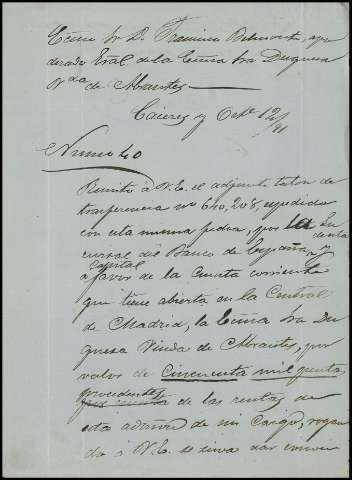 Exmo Sr D. Francisco Belmonte, apo
derado Gral de la Exma Sra Duquesa
Vda de Abrantes
Cáceres y Octe 12/91
Numo 40
Remito á V.E. el adjunto talon de
trasferencia no 640,208, expedido
con esta misma fecha, por la Su
cursal del Banco de España, en
de esta
capital
a favor de la Cuenta corriente
que tiene abierta en la Central
de Madrid, la Exma Sra Du
quesa Viuda de Abrantes, por
valor de Cincuenta mil pesetas,
procedentes
de las rentas de
esta admon de mi Cargo, rogan
do á V.E. se sirva dar conoci